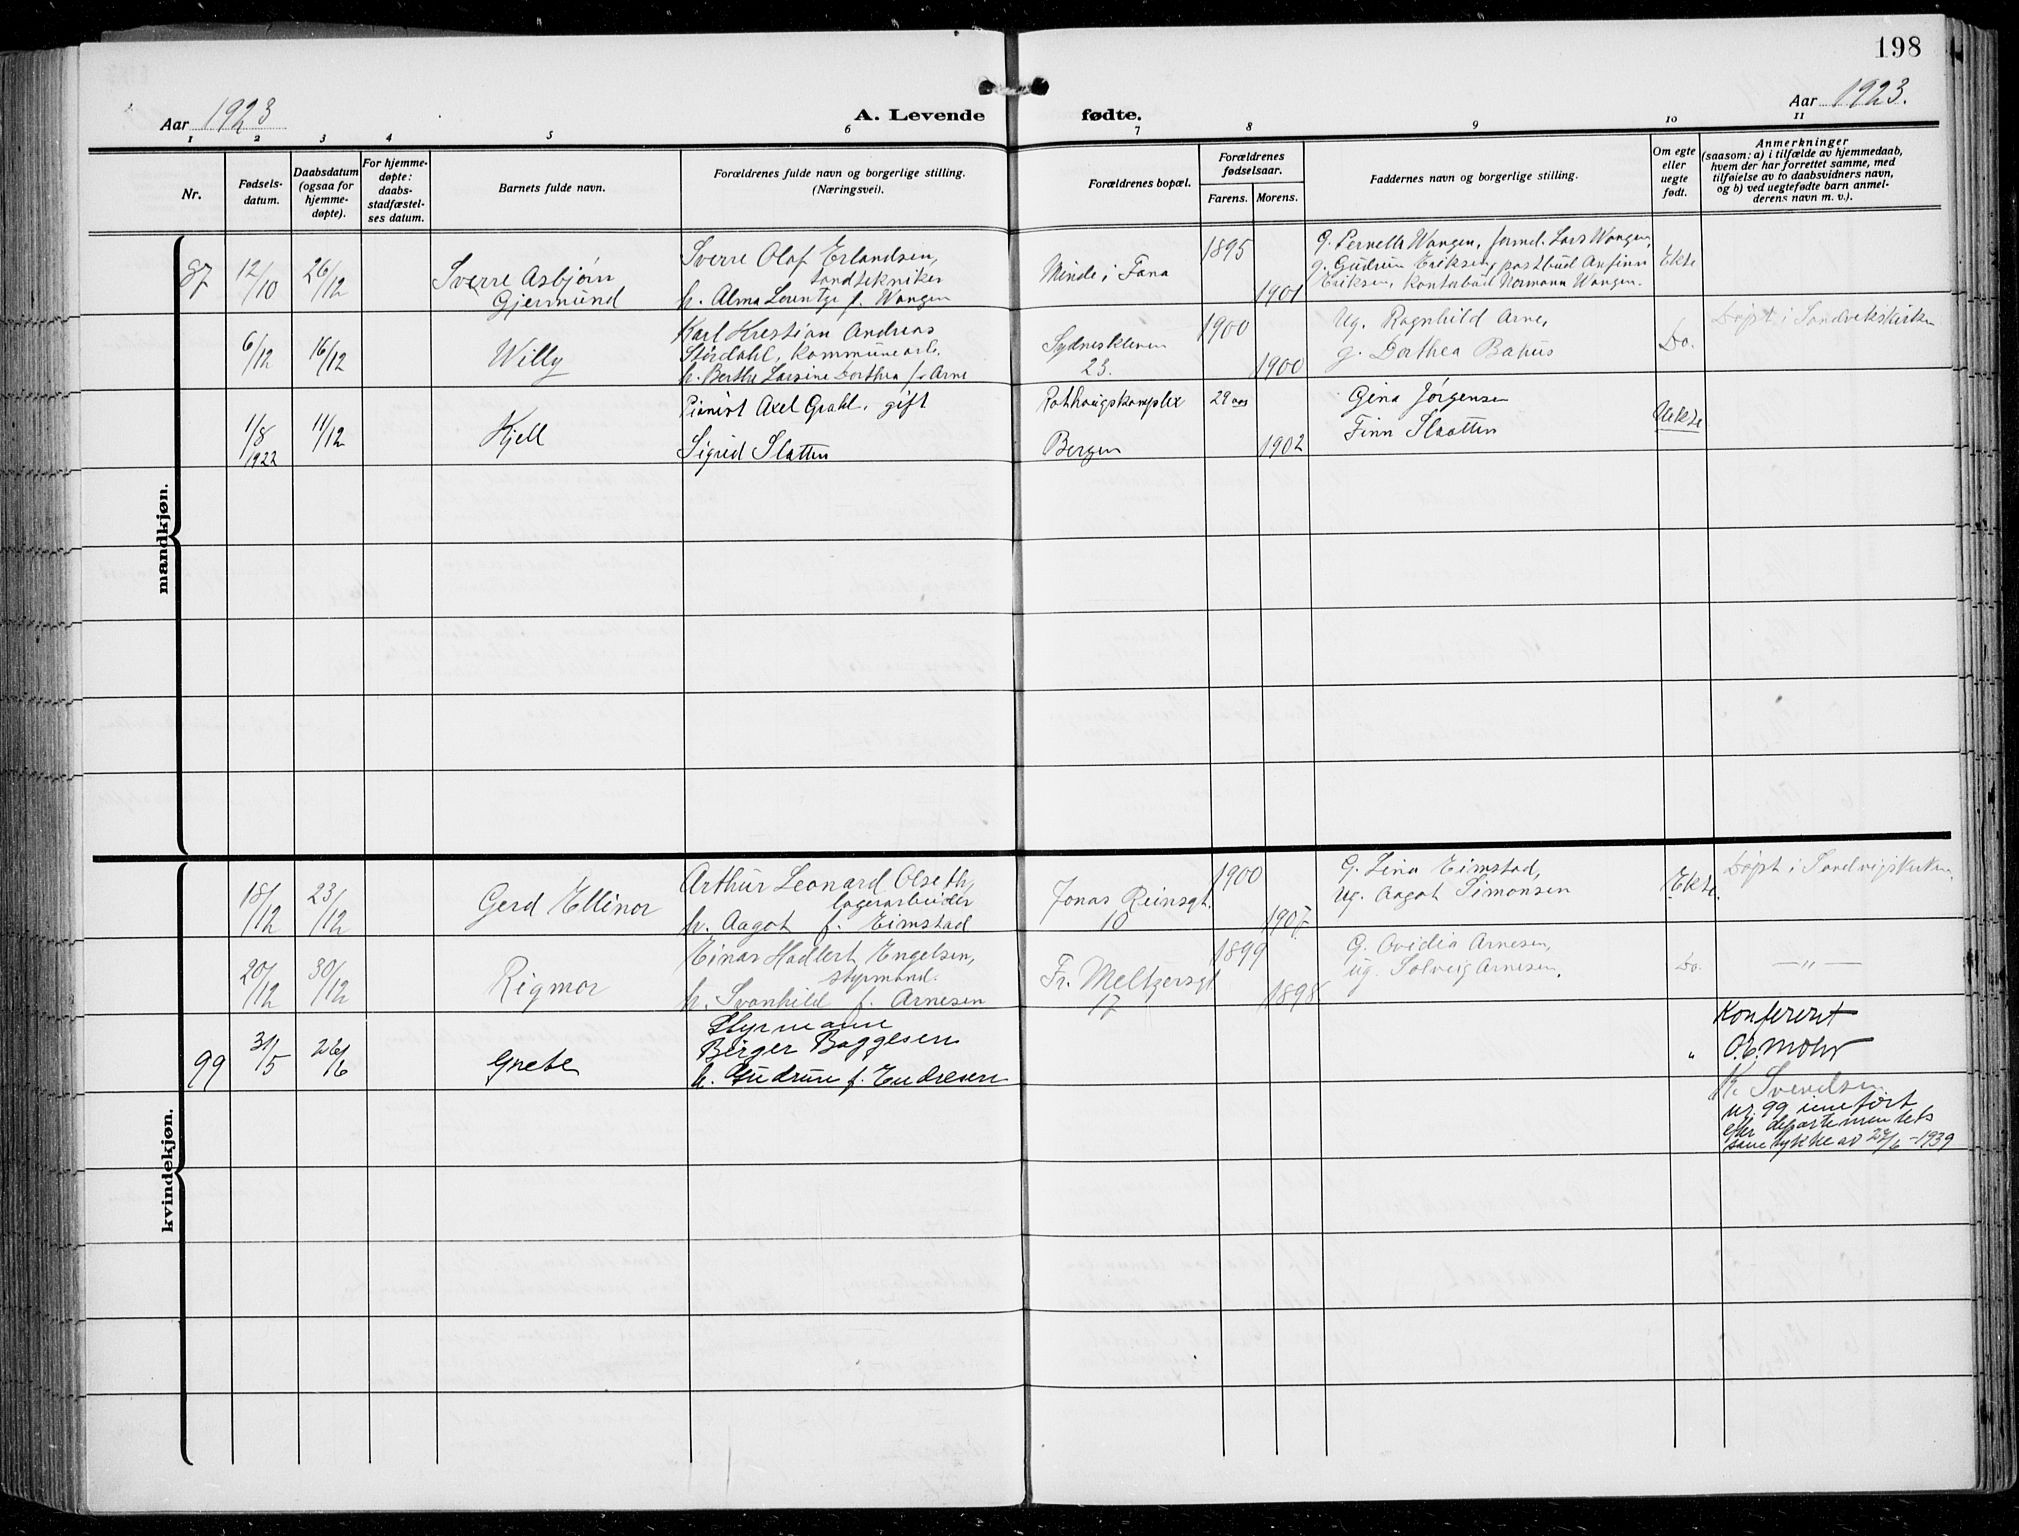 198
Aar 1923
A. Levende fødte.
Aar 1923.
1 2 3 4 5 6 7 8 9 10 11
Nr.
Fødsels-
datum.
Daabsdatum
(ogsaa for
hjemme-
døpte).
For hjemme-
døpte:
daabs-
stadfæstel-
ses datum.
Barnets fulde navn.
Forældrenes fulde navn og borgerlige stilling.
(Næringsvei).
Forældrenes bopæl.
Forældrenes
fødselsaar.
Farens. Morens.
Faddernes navn og borgerlige stilling.
Om egte
eller
uegte
født.
Anmerkninger
(saasom: a) i tilfælde av hjemmedaab,
hvem der har forrettet samme, med
tilføielse av to daabsvidners navn,
og b) ved uegtefødte barn anmel-
derens navn m. v.).
mandkjøn.
87
12/10
26/12
Sverre Asbjørn
Gjermund
Sverre Olaf Erlandsen,
tandtekniker
h. Alma Lorentze f. Wangen
Minde i Fana
1895
1901
G. Pernelle Wangen, formd. Lars Wangen,
g. Gudrun Eriksen, postbud Anfinn
Eriksen, kontorbud Normann Wangen.
Ekte
6/12
16/12
Willy
Karl Kristian Andreas
Størdahl, kommunearb.
h. Berthe Larsine Dorthea f. Arne
Sydneskleven
23.
1900
1900
Ug. Ragnhild Arne,
g. Dorthea Bakus
Do.
Døpt i Sandvikskirken
1/8
1922
11/12
Kjell
Pianist Axel Grahl, gift
Sigrid Slatten
Rothaugskomplex
Bergen
29 aar
1902
Gina Jørgensen
Finn Slaatten
Uekte
kvindekjøn.
18/12
23/12
Gerd Ellinor
Arthur Leonard Olseth,
lagerarbeider
h. Aagot f. Eimstad
Jonas Reinsgt.
10
1900
1907
G. Lina Eimstad,
Ug. Aagot Simonsen
Ekte.
Døpt i Sandvigskirken
20/12
30/12
Rigmor
Einar Hadlert Engelsen,
styrmand.
h. Svanhild f. Arnesen
Fr. Meltzersgt
17
1899
1898
G. Ovidia Arnesen,
ug. Solveig Arnesen,
Do.
— „ —
99
31/5
26/6
Grete
Styrmann
Birger Baggesen
h. Gudrun f. Endresen
„
Konferert
O.C. Mohr
K. Svendsen
nr. 99 innført
efter departementets
samtykke av 22/6 - 1939